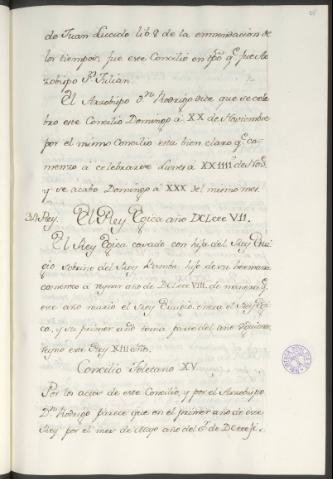 de Juan Lucido lib.º 8 de la enmendacion de
los tiempos, fue este Concilio en tpõ q̃ fue Ar
zobispo Sⁿ Julian.
El Arzobispo Dⁿ Rodrigo dice que se cele
bro este Concilio Domingo á XX de Noviembre
por el mismo Concilio esta bien claro q̃ co
menzo á celebrarse Lunes a XXIIII de Nov.
y se acabo Domingo á XXX del mismo mes.
El Rey Egica año DCLxxxVII.
El Rey Egica casado con hija del Rey Erui
gio sobrino del Rey Bamba hijo de su hermana
comenzo a reynar año de DCLxxxVIII, de manera q̃
este año murio el Rey Eruigio, entra el Rey Egi
ca, y su primer año toma parte del año siguiente
reyno este Rey XIII años.
Concilio Toletano XV.
Por los actos de este Concilio, y por el Arzobispo
Dⁿ Rodrigo parece que en el primer año de este
Rey por el mes de Mayo año del S.ʳ de